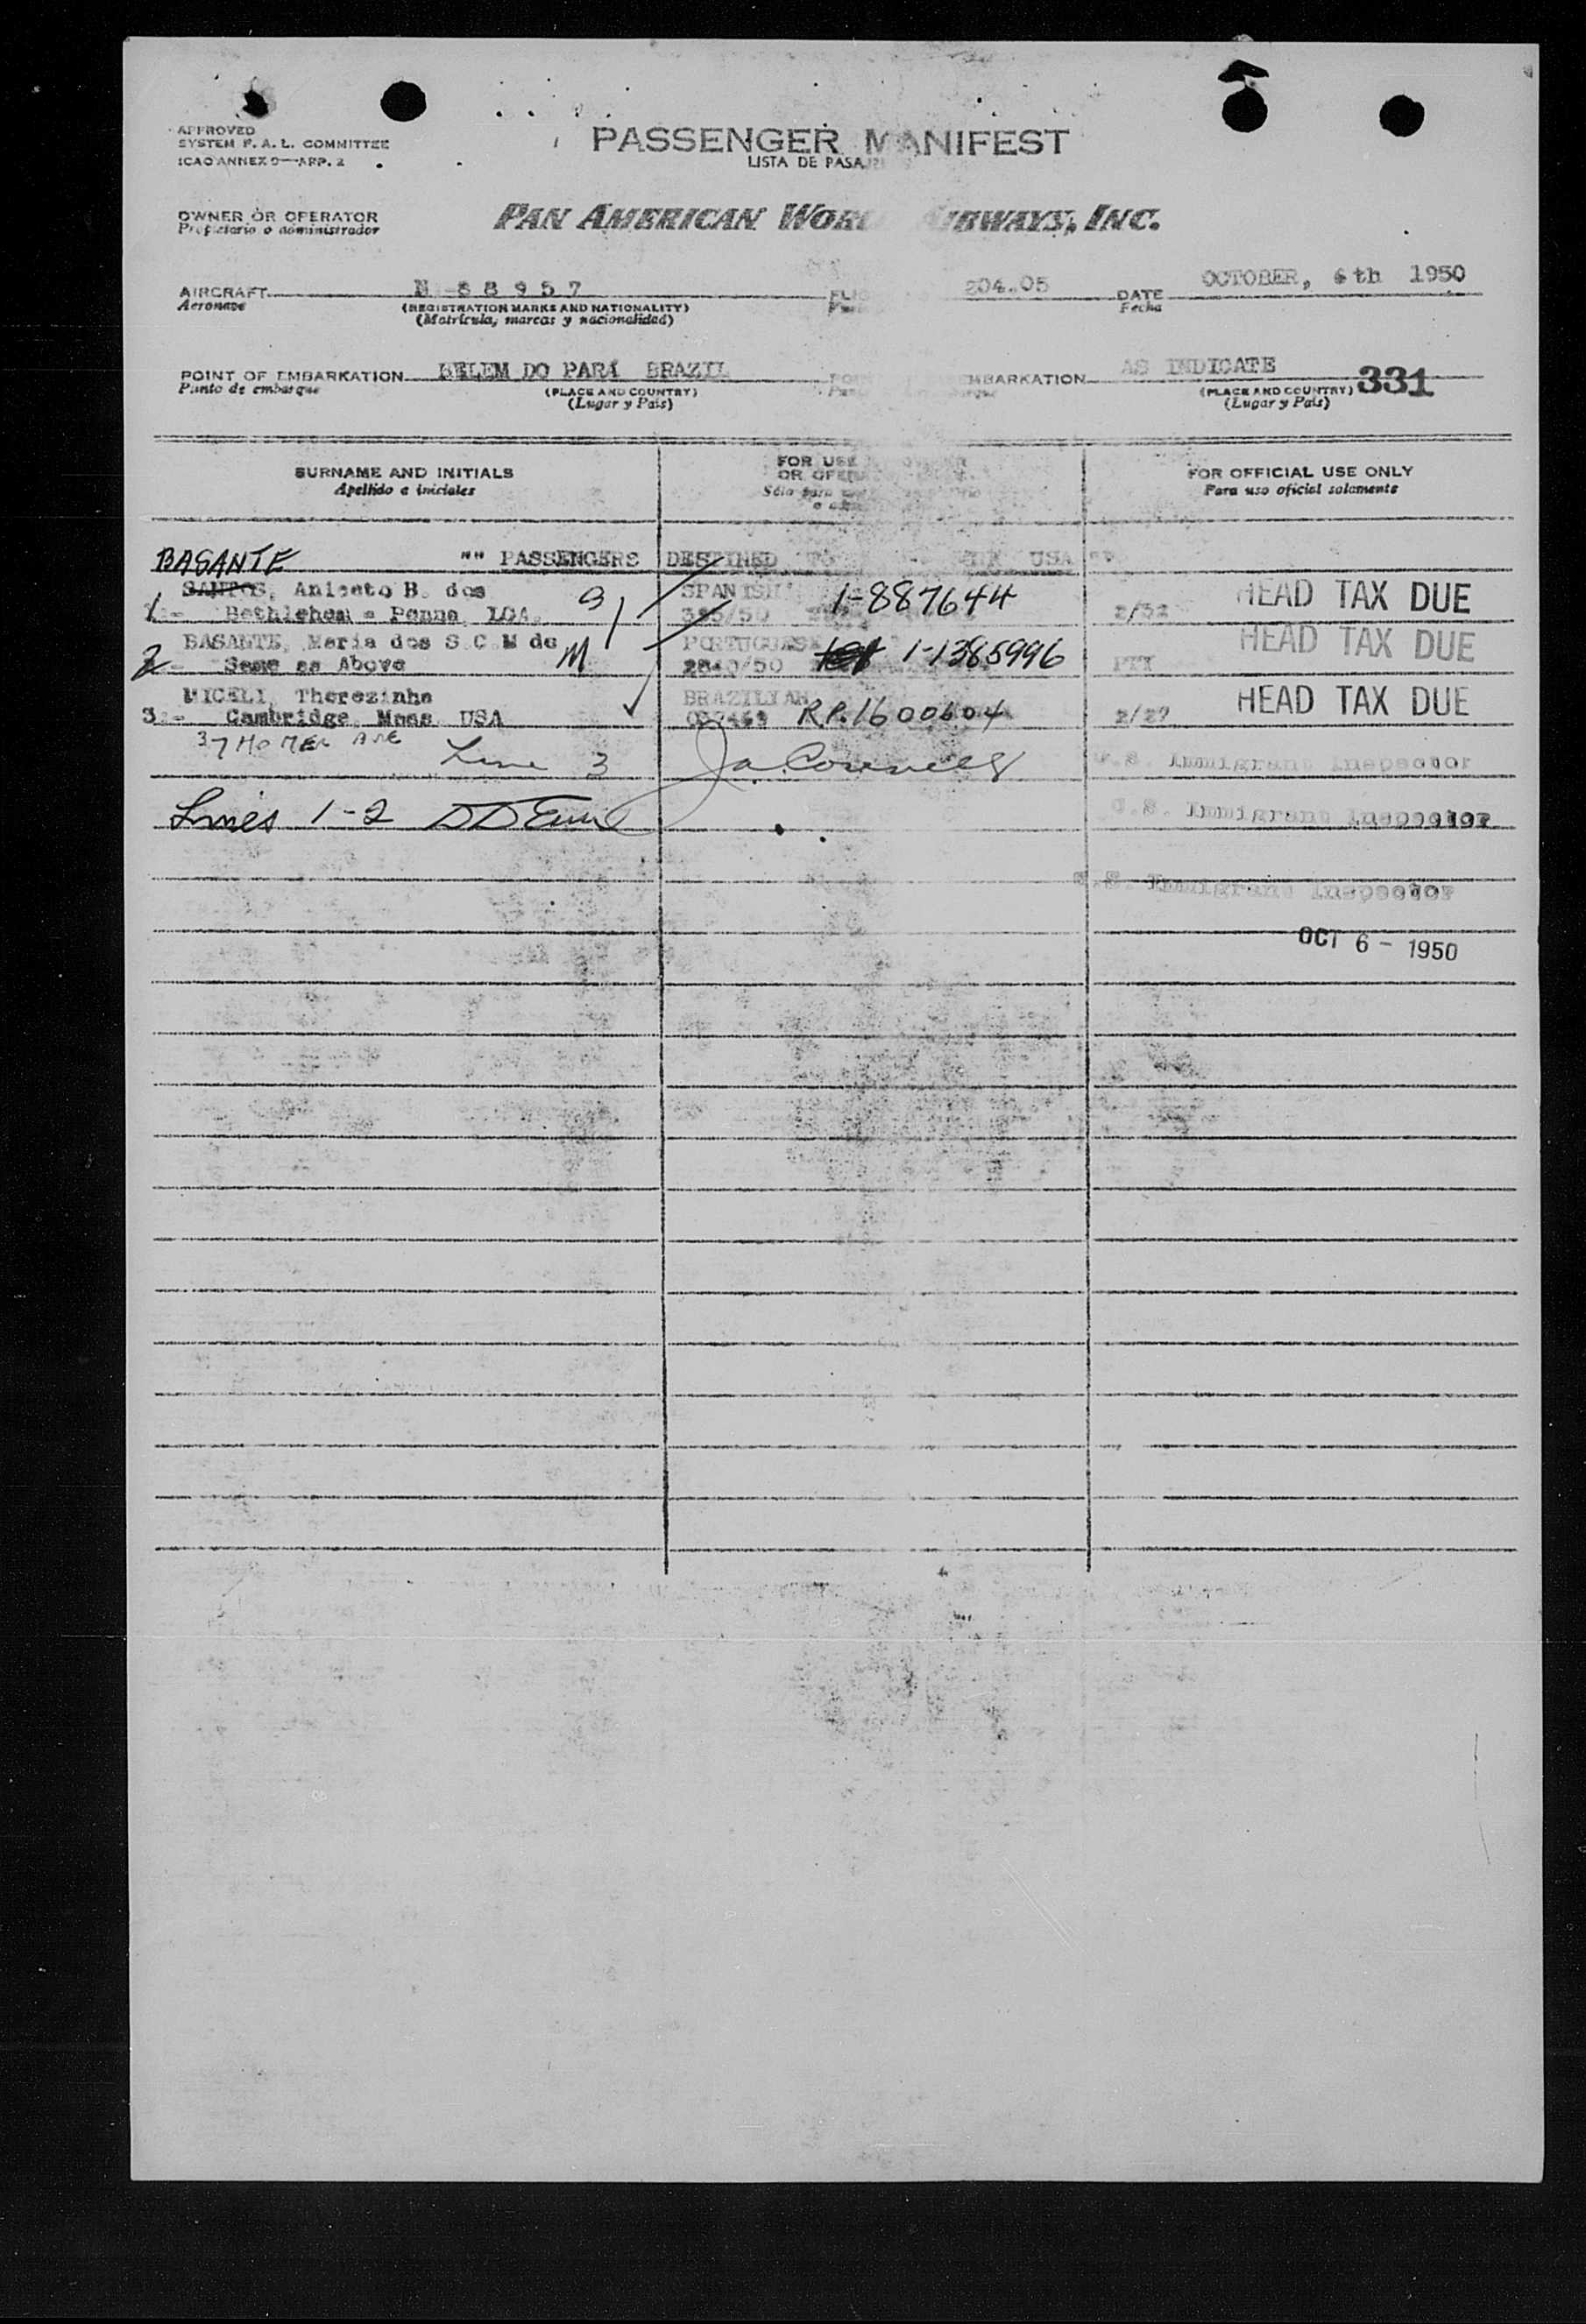 APPROVED
SYSTEM F. A. L. COMMITTEE
ICAO ANNEX 9—APP. 2
PASSENGER MANIFEST
LISTA DE PASAJ
OWNER OR OPERATOR
Propietario o administrador
PAN AMERICAN WORL AIRWAYS, INC.
AIRCRAFT N-88957 204.05 DATE OCTOBER, 6th 1950
Aeronave (REGISTRATION MARKS AND NATIONALITY) Fecha
(Matrícula, marcas y nacionalidad)
POINT OF EMBARKATION BELEM DO PARÁ BRAZIL MBARKATION AS INDICATE
Punto de embarque (PLACE AND COUNTRY) (PLACE AND COUNTRY) 331
(Lugar y País) (Lugar y País)
SURNAME AND INITIALS FOR USE FOR OFFICIAL USE ONLY
Apellido e iniciales OR OPER Para uso oficial solamente
Sólo para
BASANTE "" PASSENGERS DESTINED TO USA ""
SANTOS, Aniceto B. dos SPANISH 1-887644 HEAD TAX DUE
1- Bethlehem - Penna, 385/50 2/52
BASANTE, Maria dos S C M de M PORTUGUESE 1-1385996 HEAD TAX DUE
2- Same as Above 2840/50
MICELI, Therezinha BRAZILIAN HEAD TAX DUE
3- Cambridge Mass USA RP.1600604 2/27
37 HOMER AVE
Line 3 U.S. Immigrant Inspector
Lines 1-2 U.S. Immigrant Inspector
U.S. Immigrant Inspector
OCT 6 - 1950